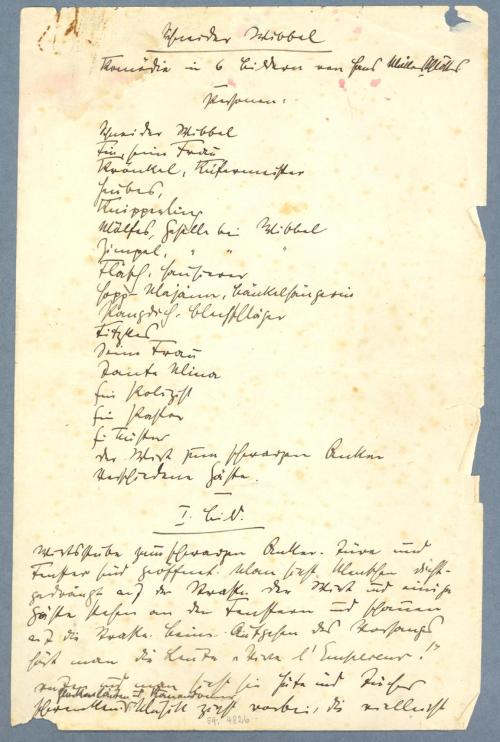 Schneider Wibbel
Komödie in 6 Bildern von Hans Müller-Schlösser
Personen:
Schneider Wibbel
Fin, seine Frau
Kröukel, Küfermeister
Heubes,
Knipperling
Mölfes, Geselle bei Wibbel
Zimpel, " " "
Fläsch, Hausierer
Hopp-Majänn, Bänkelsängerin
Pangdich, Blechschläger
Fitzkes
Seine Frau
Tante Mina
Ein Polizist
Ein Pastor
E. Küster
Der Wirt zum schwarzen Anker
Verschiedene Gäste.
I. Bild.
Wirtsstube zum schwarzen Anker. Türe und
Fenster sind geöffnet. Man sieht Menschen dicht-
gedrängt auf der Straße. Der Wirt und einige
Gäste stehen an den Fenstern und schauen
auf die Straße. Beim Aufgehen des Vorhangs
hört man die Leute „Vive l'Empereur!"
rufen und man sieht sie Hüte und Tücher
Glockenläuten u. Kanonendonner
schwenken. Musik zieht vorbei, die vielleicht
59. 4826